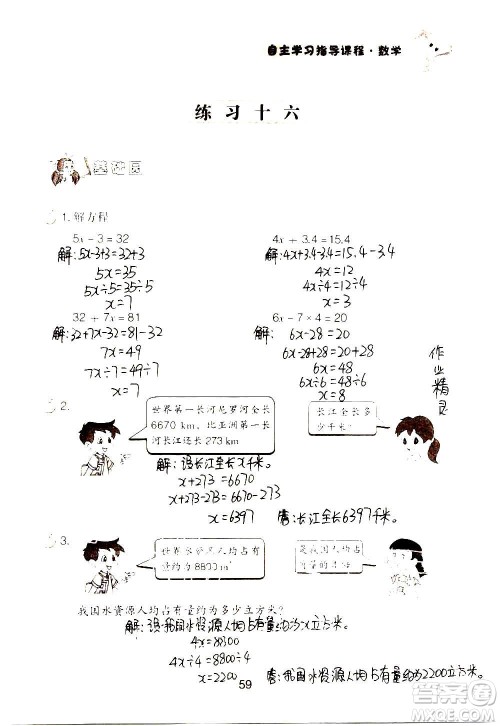 自主学习指导课程·数学
练习十六
基础园
1. 解方程
5x－3＝32
解：5x-3+3=32+3
5x=35
5x÷5=35÷5
x=7
4x＋3.4＝15.4
解：4x+3.4-3.4=15.4-3.4
4x=12
4x÷4=12÷4
x=3
32＋7x＝81
解：32+7x-32=81-32
7x=49
7x÷7=49÷7
x=7
6x－7×4＝20
解：6x-28=20
6x-28+28=20+28
6x=48
6x÷6=48÷6
x=8
作业精灵
2.
世界第一长河尼罗河全长
6670 km，比亚洲第一长
河长江还长 273 km。
长江全长多
少千米？
解：设长江全长x千米。
x+273=6670
x+273-273=6670-273
x=6397
答：长江全长6397千米。
3.
世界水资源人均占有
量约为 8800 m³
是我国人均占有
量的 4 倍。
我国水资源人均占有量约为多少立方米？
解：设我国水资源人均占有量约为x立方米。
4x=8800
4x÷4=8800÷4
x=2200
答：我国水资源人均占有量约为2200立方米。
59